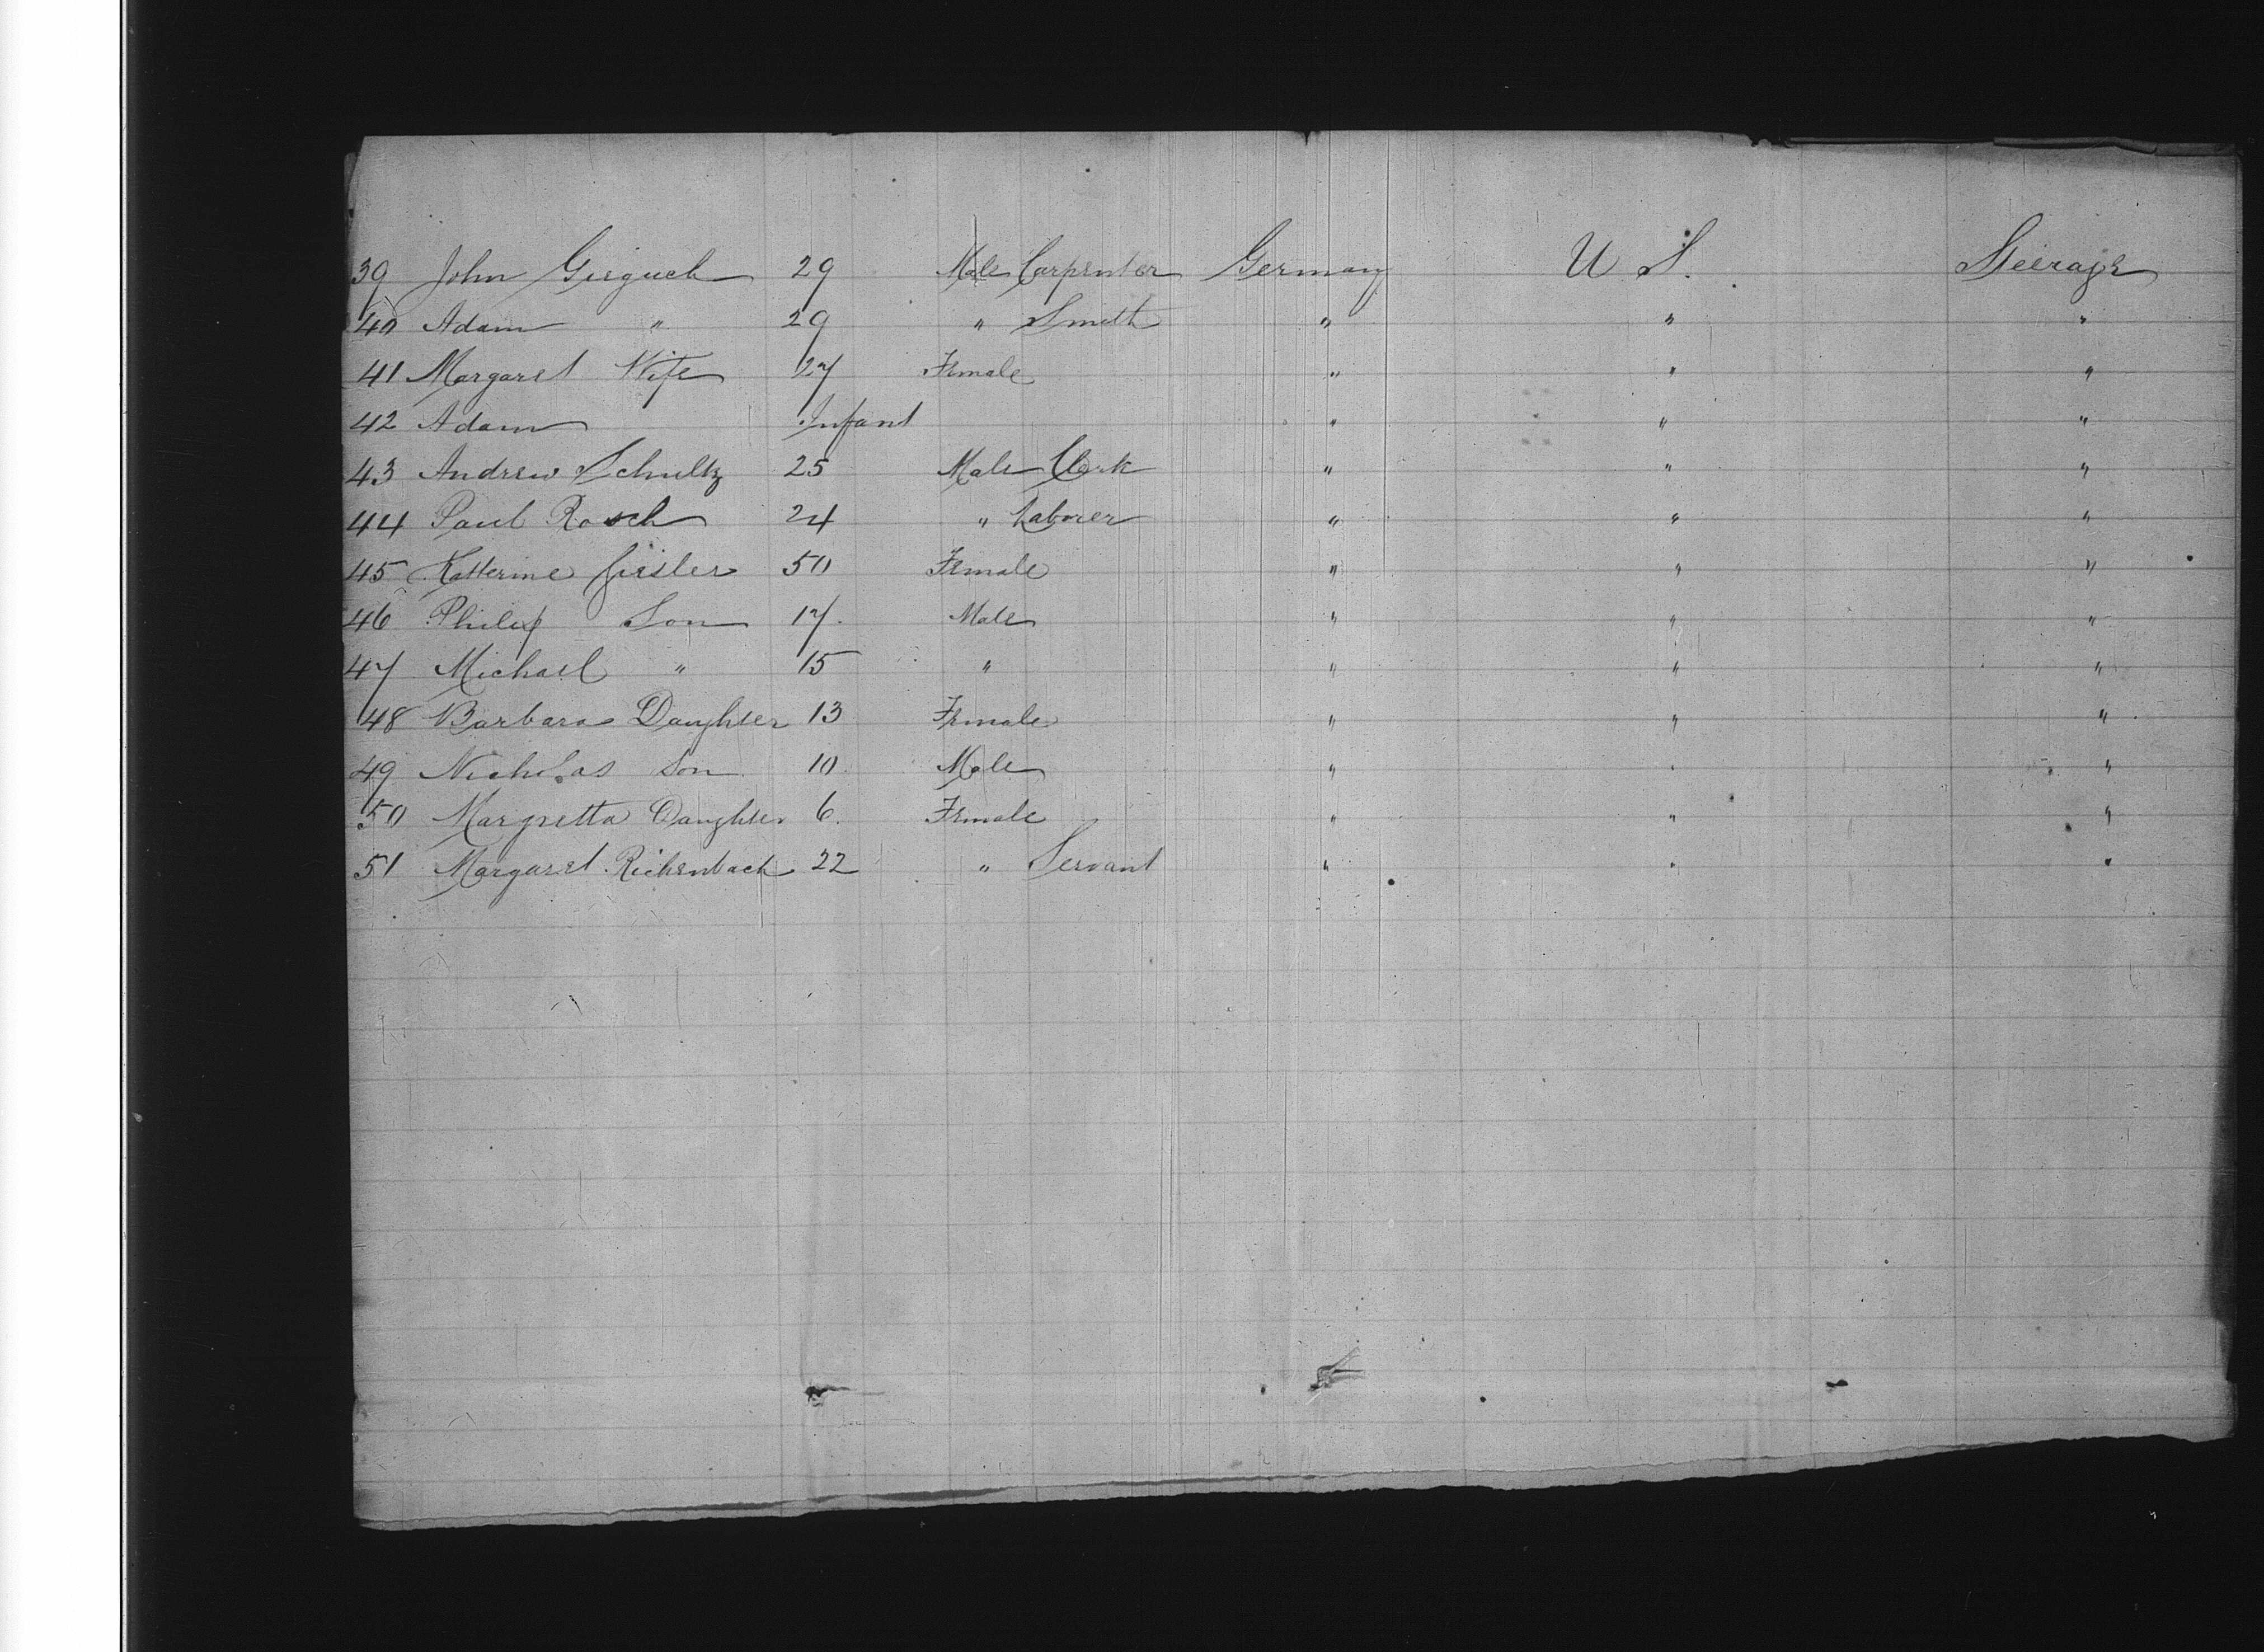 39 John Girguch 29 Male Carpenter Germany U S. Steerage
40 Adam " 29 " Smith " " "
41 Margaret Wife 27 Female " " "
42 Adam Infant " " "
43 Andrew Schultz 25 Male Clerk " " "
44 Paul Rosch 24 " Laborer " " "
45 Katterine 50 Female " " "
46 Philip Son 17. Male " " "
47 Michael " 15 " " " "
48 Barbara Daughter 13 Female " " "
49 Nicholas Son 10. Male " " "
50 Margretta Daughter 6. Female " " "
51 Margaret Richenbach 22 " Servant " " "